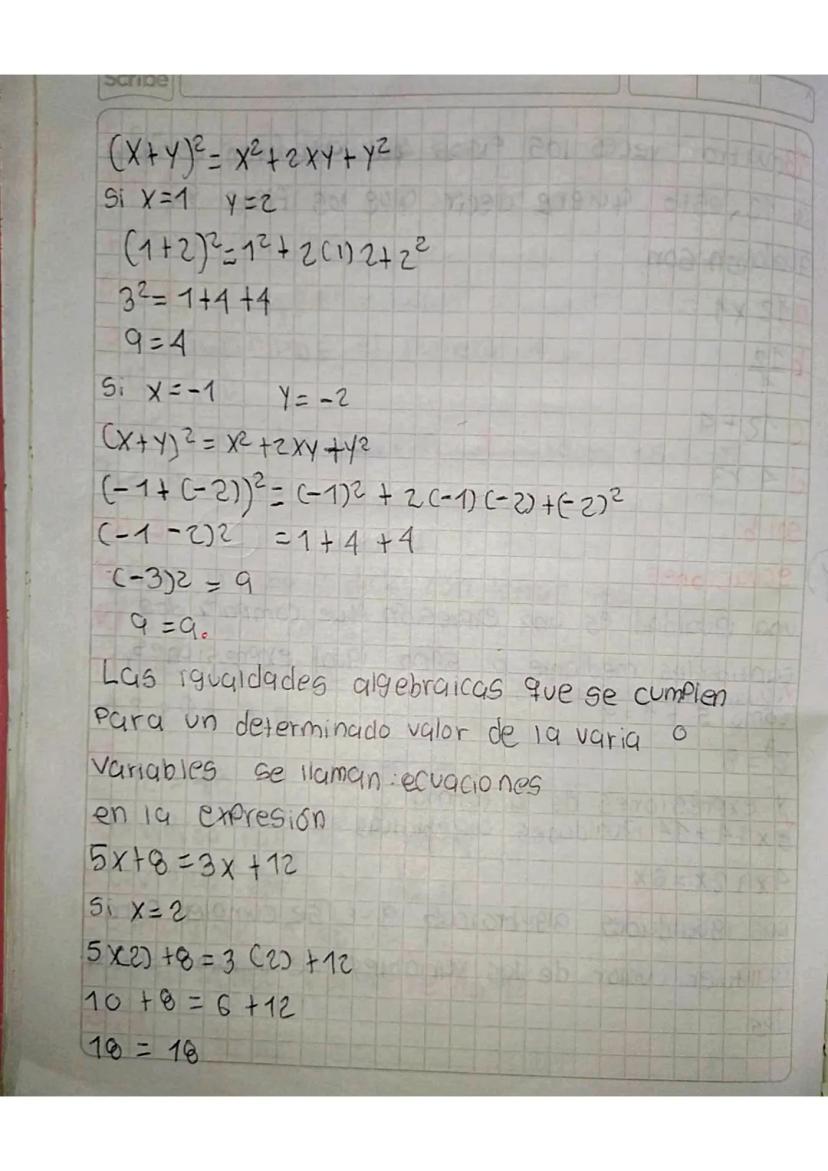 Scribe
(x+y)²= x²+2xy+y²
Si x=1 y=2
(1+2)²=1²+2(1)2+2²
3²= 1+4+4
9=4
Si x=-1 y= -2
(x+y)²= x²+2xy+y²
(-1+(-2))²= (-1)²+ 2(-1)(-2)+(-2)²
(-1-2)2 =1+4+4
(-3)2 = 9
9=9.
Las igualdades algebraicas que se cumplen
Para un determinado valor de la varia o
variables se llaman:ecuaciones
en la expresión
5x+8=3x+12
Si x=2
5x(2)+8=3(2)+12
10+8=6+12
18=18